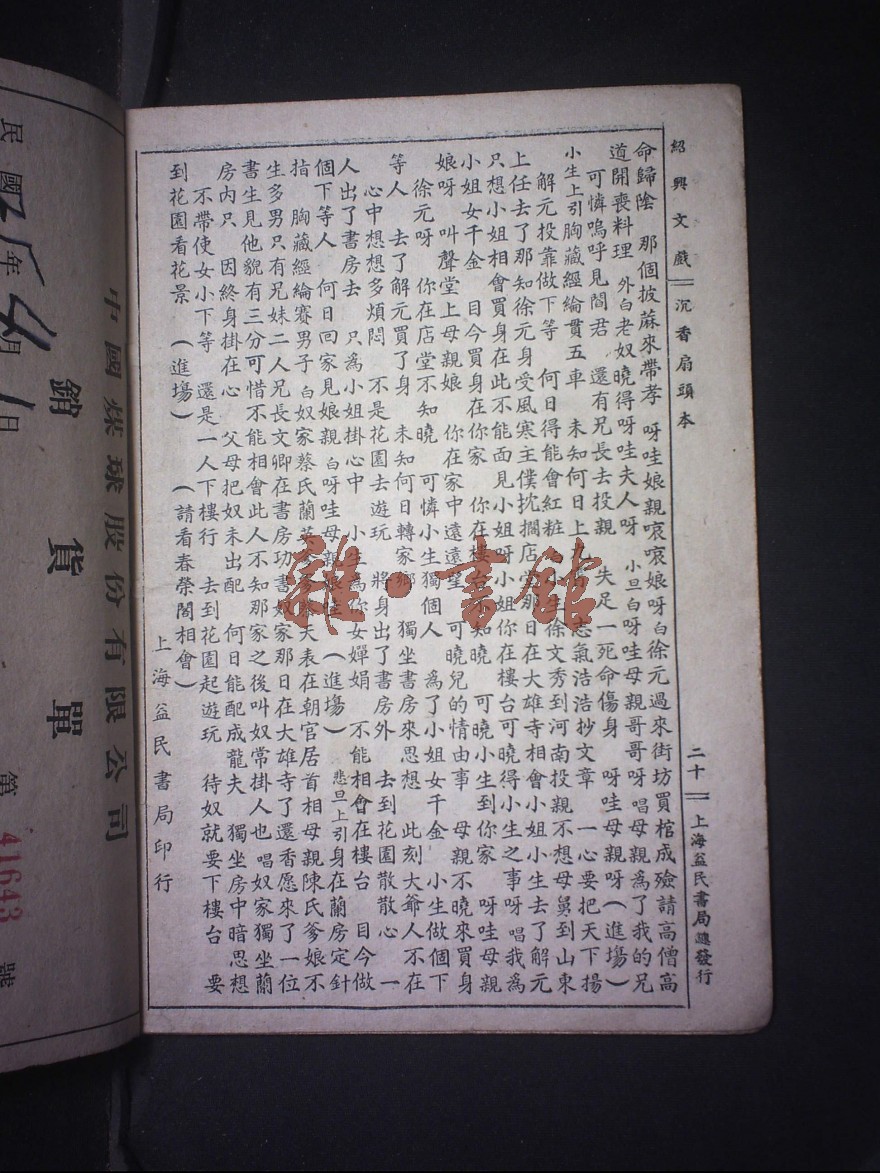 紹興文戲 沉香扇頭本 二十 上海益民書局總發行
命歸陰 那個披蔴來帶孝 呀哇娘親哀哀娘呀白徐元過來街坊買棺成殮請高僧高
道開喪料理 外白老奴曉得呀哇夫人呀 小旦白呀哇母親哥哥呀 唱母親為了我的兄
可憐嗚呼見閻君 還有兄長去投親 失足一死命傷身 呀哇母親呀(進場)
小生上引胸藏經綸貫五車 未知何日上九 志氣浩浩抄文章 一心要把天下揚
解元投靠做下等 何日得能會紅粧 小生徐文秀到河南投親不想母舅到山東
上任去了那知徐元身受風寒主僕扰擱店 那日在大雄寺相會小姐小生去了解元
只想小姐相會買身在此不能面見小姐呀小姐你在樓台可曉得小生之事呀 唱我為
小姐女千金 目今買身在你家 你在樓台不知曉 可曉小生到你家 呀哇母親
娘呀 叫聲堂上母親娘 你在家中遠遠望 可曉兒的情由事 母親不曉來買身
徐元呀 你在店堂不知曉 可憐小生獨個人 為了小姐女千金 小生做個下
等人 去了解元買了身 未知何日轉家鄉 獨坐書房來思想 此刻大爺人不在
心中想想多煩悶 不是花園去遊玩 將身出了書房外 去到花園散散心 一
人出了書房去 只為小姐掛心中 小生為你女嬋娟 不能相會在樓台 目今做
個下等人 何日回家見娘親 白呀哇母親娘 (進塲) 悲旦上引身在蘭房定針
指 胸藏經綸賽男子 白奴家蔡氏蘭英 爹爹蔡天表在朝官居首相母親陳氏爹娘不
生多男只有兄妹二人兄長文卿在書房功書奴家那日在大雄寺了還香愿來了一位
書生見他貌有三分可惜不能相會此人不知那家之後叫奴常掛人也 唱奴家獨坐蘭
房內只 因終身掛在心 父母把奴未出配 何日能配成龍夫 獨坐房中暗思想
不帶使女小下等 還是一人下樓行 去到花園起遊玩 待奴就要下樓台 要
到花園看花景 (進塲) (請看春榮閣相會)
上海益民書局印行
中國燦球股份有限公司
銷貨單
第 41643 號
民國 年 月 日
雜·書館